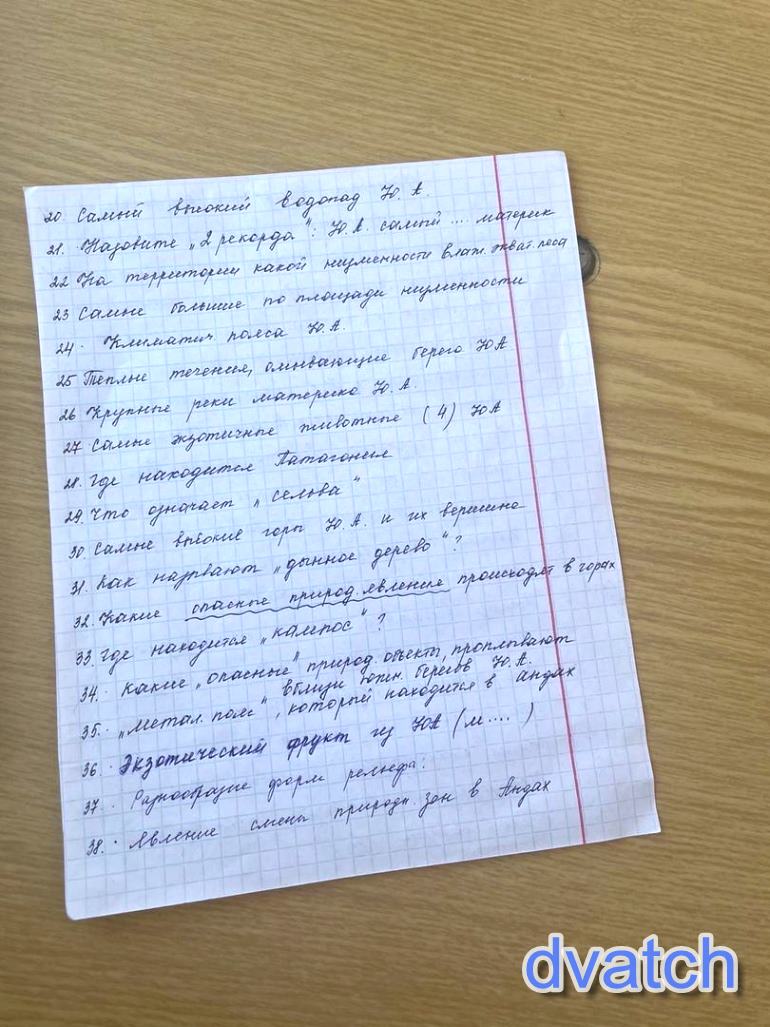 20 Самый высокий водопад Ю. А.
21. Назовите „2 рекорда": Ю. А. самый .... материк
22 На территории какой низменности влаж. экват. леса
23 Самые большие по площади низменности
24. Климатич. пояса Ю. А.
25 Теплые течения, омывающие берега ЮА
26 Крупные реки материка Ю. А.
27. Самые экзотичные животные (4) ЮА
28. Где находится Патагония
29. Что означает „сельва"
30. Самые высокие горы Ю. А. и их вершина
31. Как называют „дынное дерево"?
32. Какие опасные природ. явление происходят в горах
33. Где находится „кампос"?
34. Какие „опасные" природ. объекты, проплывают
вблизи южн. берегов Ю. А.
35. „метал. пояс", который находится в андах
36. Экзотический фрукт из ЮА (м .... )
37. Разнообразие форм рельефа:
38. Явление смены природн. зон в Андах
dvatch